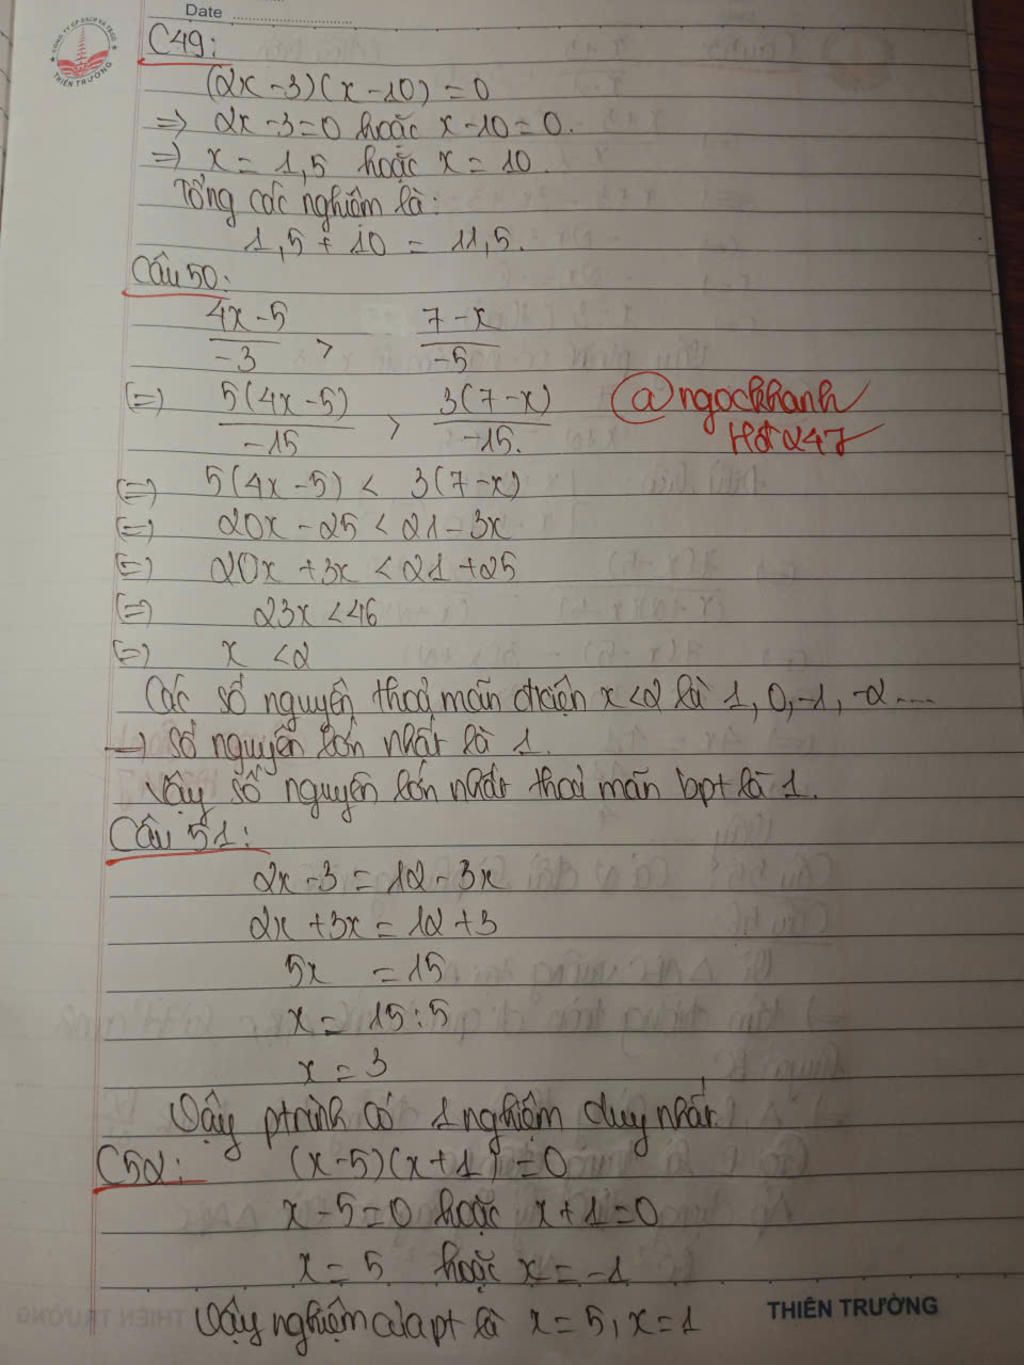 Date
CÔNG TY CP SÁCH VÀ TBGD
THIÊN TRƯỜNG
C49:
(2x - 3)(x - 10) = 0
=> 2x - 3 = 0 hoặc x - 10 = 0.
=> x = 1,5 hoặc x = 10.
Tổng các nghiệm là:
1,5 + 10 = 11,5.
Câu 50:
4x - 5 / -3 > 7 - x / -5
(=) 5(4x - 5) / -15 > 3(7 - x) / -15.
@ngockhanh
Hđ 247
(=) 5(4x - 5) < 3(7 - x)
(=) 20x - 25 < 21 - 3x
(=) 20x + 3x < 21 + 25
(=) 23x < 46
(=) x < 2
Các số nguyên thoả mãn x < 2 là 1, 0, -1, -2 ....
=> số nguyên lớn nhất là 1.
Vậy số nguyên lớn nhất thoả mãn bpt là 1.
Câu 51:
2x - 3 = 12 - 3x
2x + 3x = 12 + 3
5x = 15
x = 15 : 5
x = 3
Vậy ptrình có 1 nghiệm duy nhất.
C52: (x - 5)(x + 1) = 0
x - 5 = 0 hoặc x + 1 = 0
x = 5 hoặc x = -1
Vậy nghiệm của pt là x = 5, x = 1
THIÊN TRƯỜNG